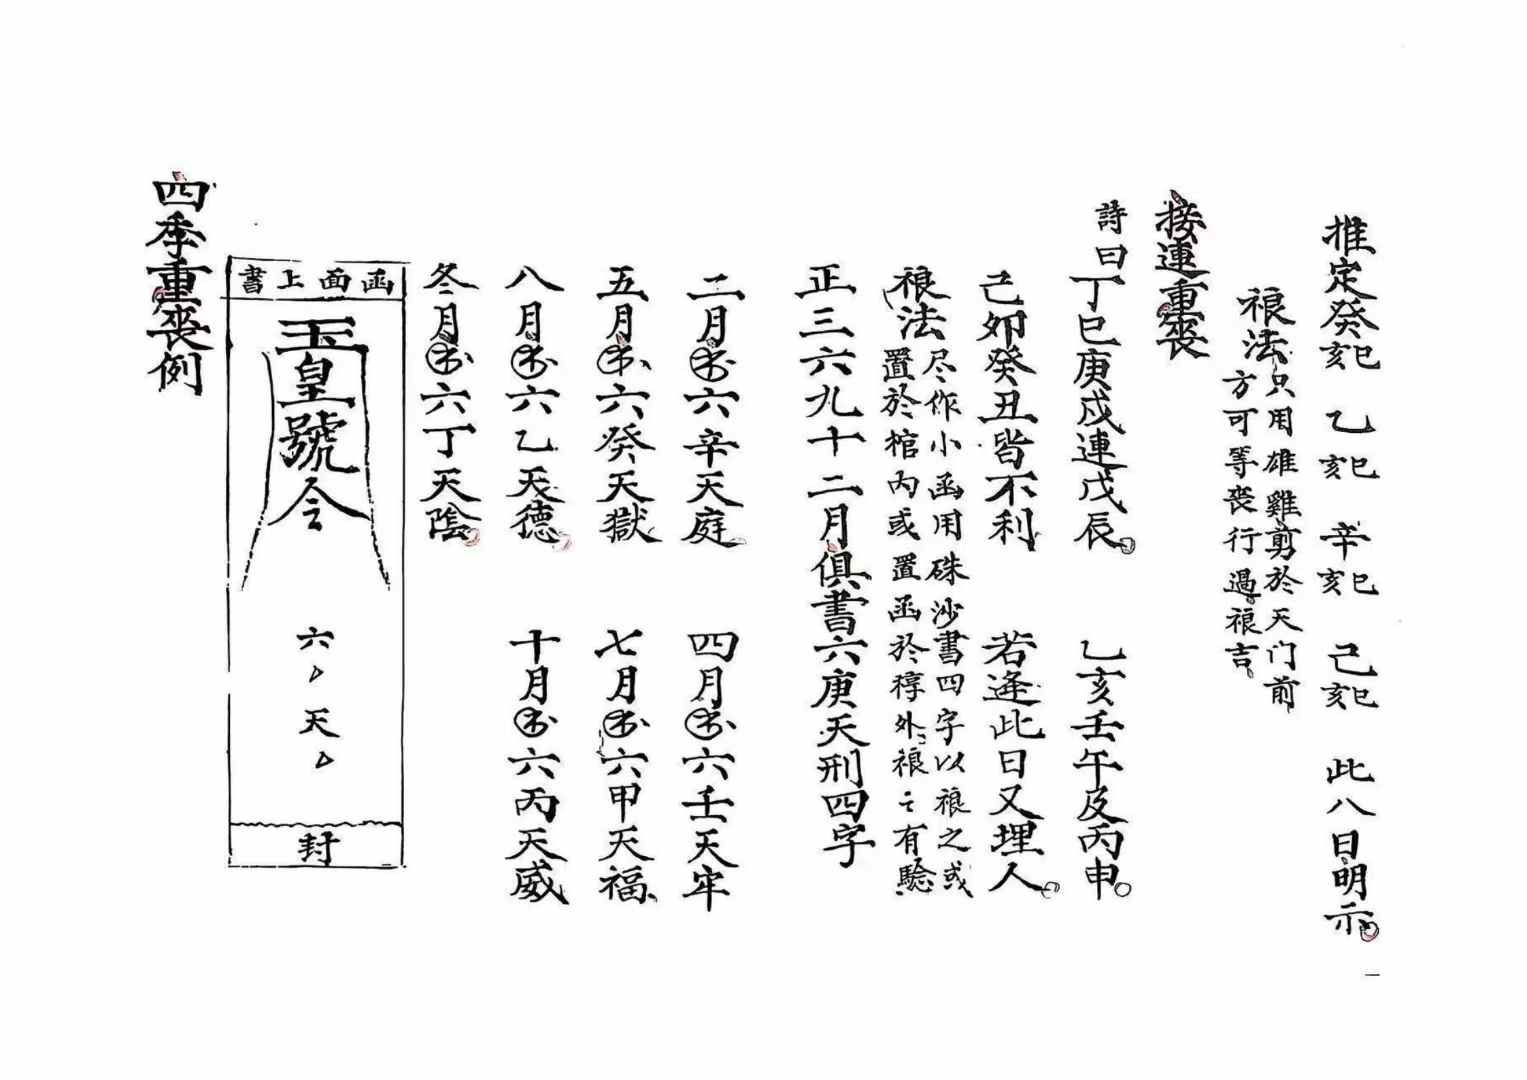 推定癸巳亥 乙巳亥 辛巳亥 己巳亥 此八日明示
禳法只用雄雞剪於天门前
方可等丧行過禳吉
接連重丧
詩曰丁巳庚戌連戊辰 乙亥壬午及丙申
己卯癸丑皆不利 若逢此日又埋人
禳法尽作小函用硃沙書四字以禳之或
置於棺內或置函於椁外禳之有驗
正三六九十二月俱書六庚天刑四字
二月書六辛天庭 四月書六壬天牢
五月書六癸天獄 七月書六甲天福
八月書六乙天德 十月書六丙天威
冬月書六丁天陰
函面上書
玉皇號令
六、天、
封
四季重丧例
一